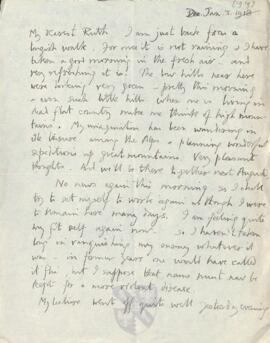 (1919)
Dec. Jan 3. 1918
My dearest Ruth I am just back from a
longish walk. For once it is not raining & I have
taken a good morning in the fresh air. and
very refreshing it is! The low hills near here
were looking very green & pretty this morning
& even such little hills when one is living in
sad flat country make me think of high moun-
tains. My imagination has been wandering in
its leisure among the Alps & planning wonderful
expeditions up great mountains. Very pleasant
thoughts. And we'll so there together next August.
No news again this morning so I shall
try to set myself to work again as though I were
to remain here many days. I am feeling quite
my fit self again now. so I haven't taken
long in vanquishing my enemy whatever it
was - in former years one would have called
it flu', but I suppose that name must now be
kept for a more violent disease.
My lecture went off quite well yesterday evening